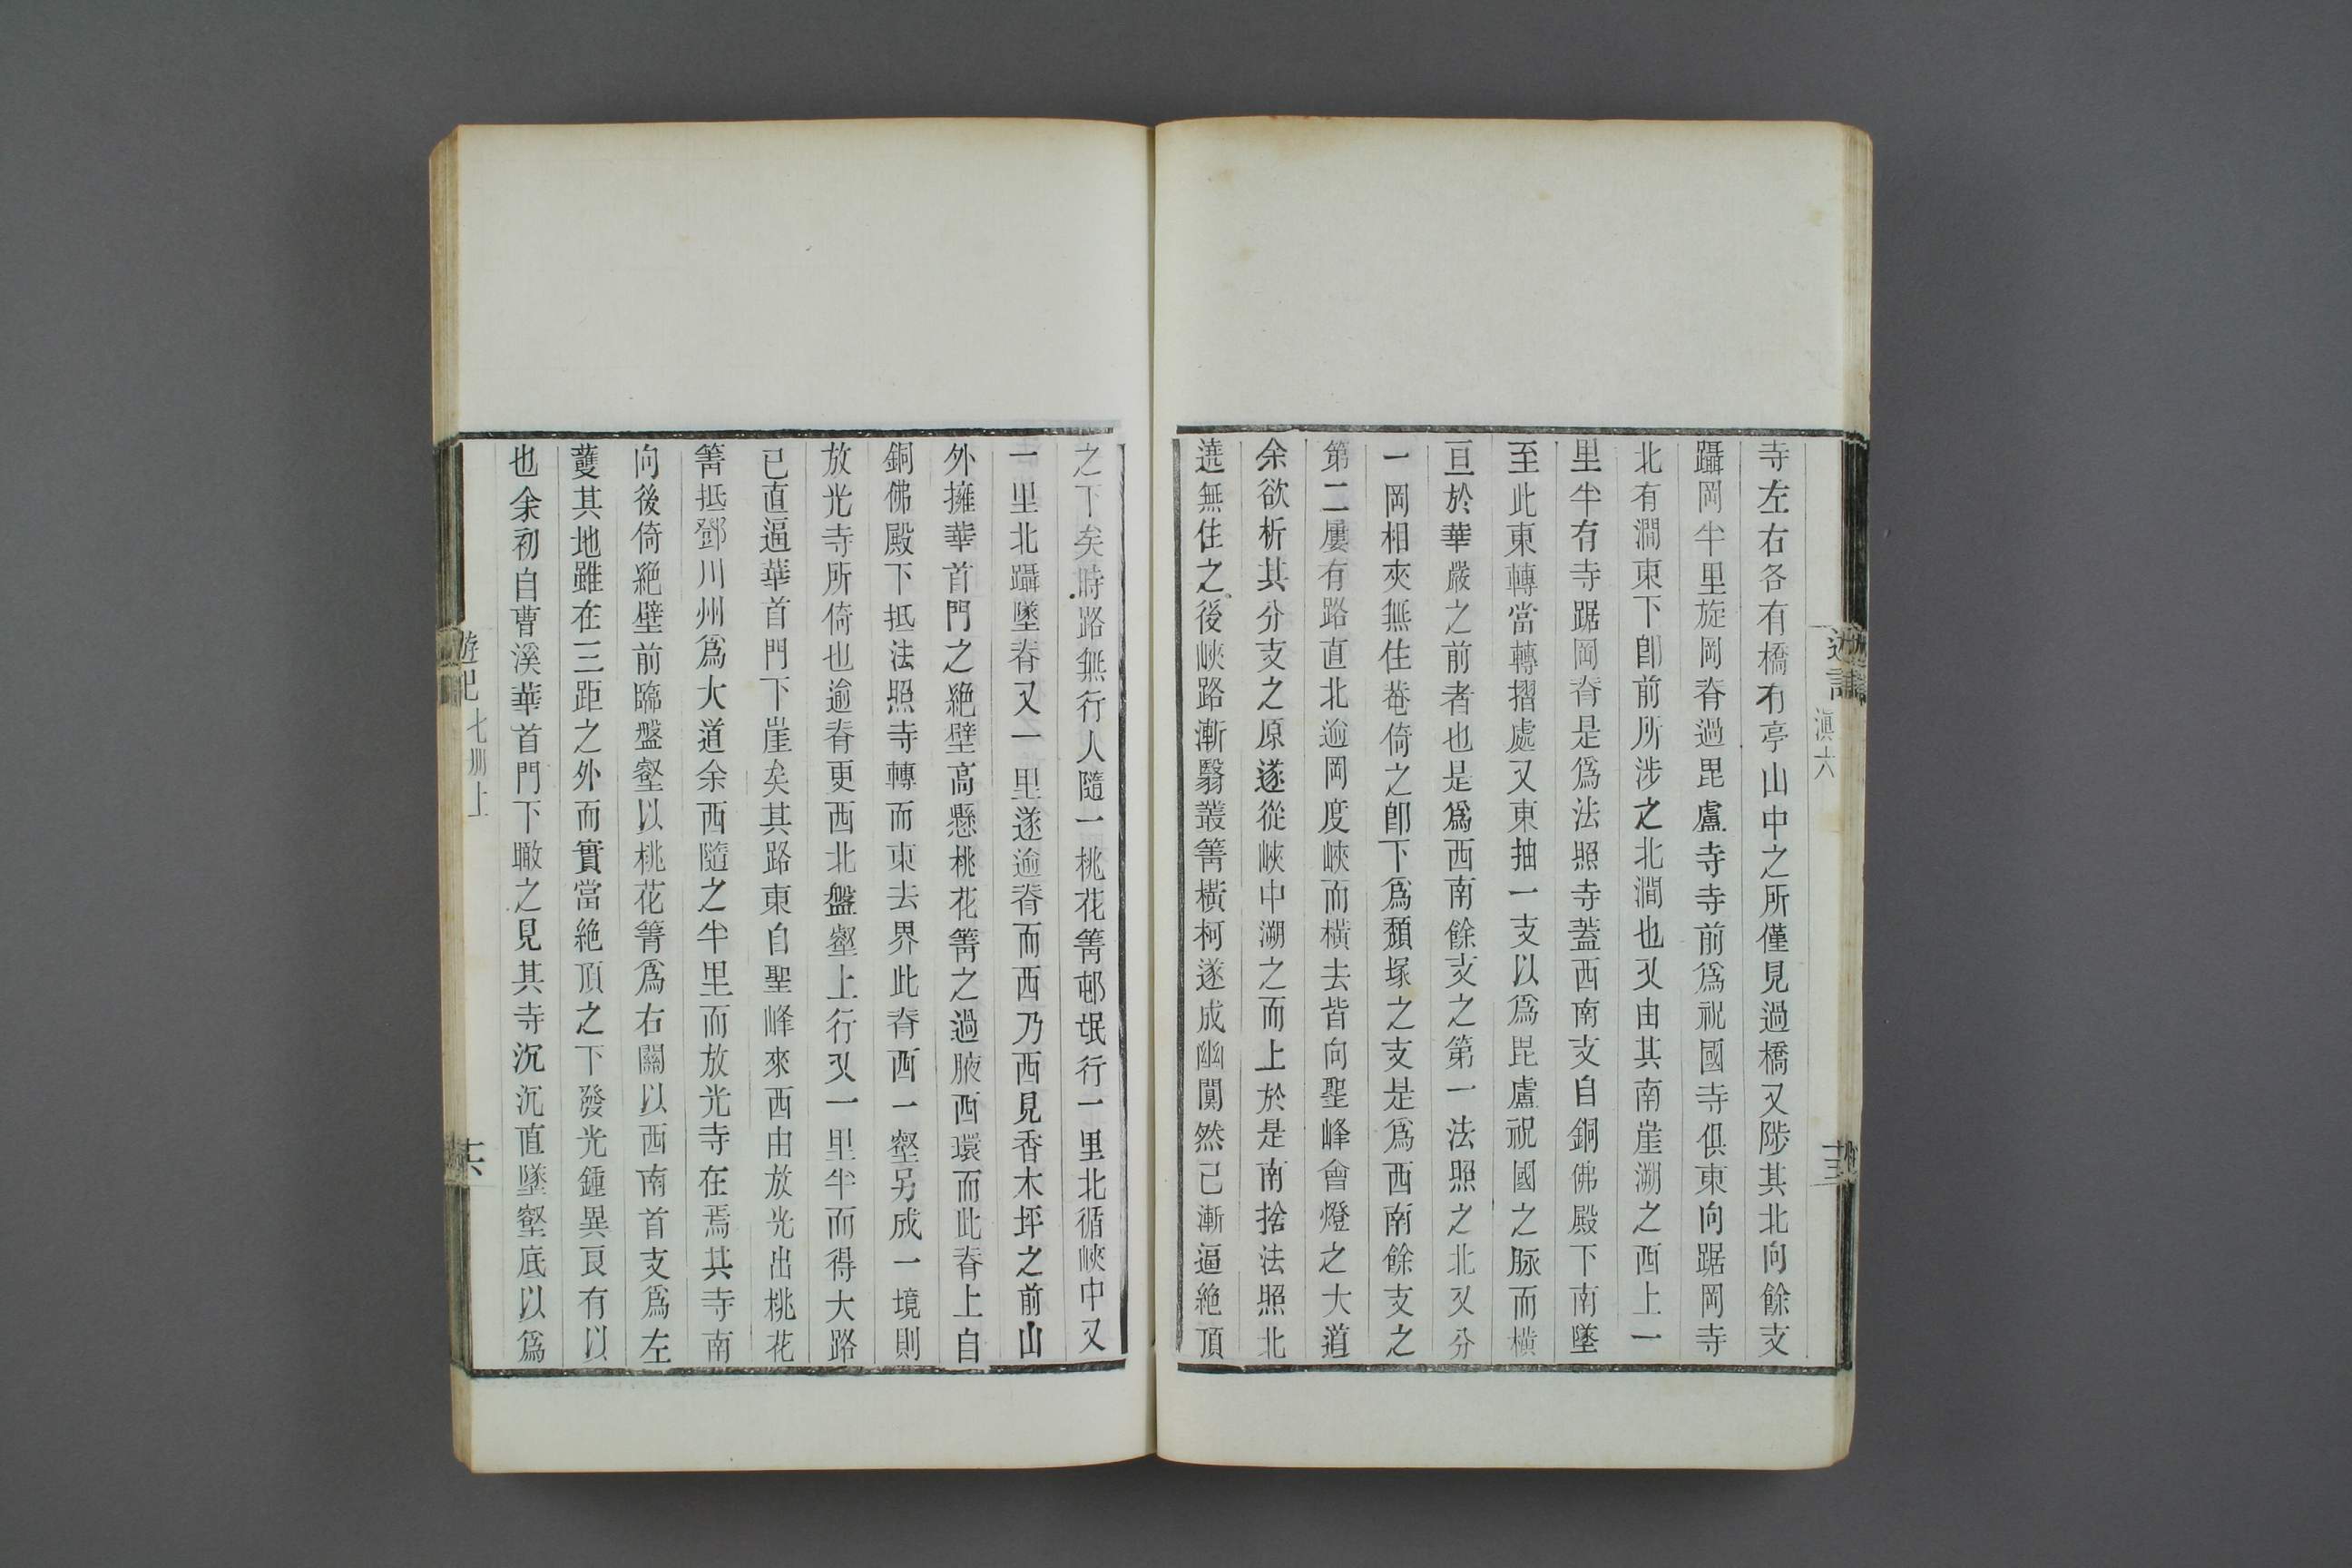 滇六
寺左右各有橋有亭山中之所僅見過橋又陟其北向餘支
躡岡半里旋岡脊過毘盧寺寺前爲祝國寺俱東向踞岡寺
北有澗東下卽前所涉之北澗也又由其南崖溯之西上一
里半有寺踞岡脊是爲法照寺蓋西南支自銅佛殿下南墜
至此東轉當轉摺處又東抽一支以爲毘盧祝國之脉而橫
亘於華嚴之前者也是爲西南餘支之第一法照之北又分
一岡相夾無住菴倚之卽下爲頹塚之支是爲西南餘支之
第二屢有路直北逾岡度峽而橫去皆向聖峰會燈之大道
余欲析其分支之原遂從峽中溯之而上於是南捨法照北
遶無住之後峽路漸翳叢箐橫柯遂成幽闃然已漸逼絶頂
之下矣時路無行人隨一桃花箐邨氓行一里北循峽中又
一里北躡墜脊又一里遂逾脊而西乃西見香木坪之前山
外擁華首門之絶壁高懸桃花箐之過腋西環而此脊上自
銅佛殿下抵法照寺轉而東去界此脊西一壑另成一境則
放光寺所倚也逾脊更西北盤壑上行又一里半而得大路
已直逼華首門下崖矣其路東自聖峰來西由放光出桃花
箐抵鄧川州爲大道余西隨之半里而放光寺在焉其寺南
向後倚絶壁前臨盤壑以桃花箐爲右關以西南首支爲左
護其地雖在三距之外而實當絶頂之下發光鍾異良有以
也余初自曹溪華首門下瞰之見其寺沉沉直墜壑底以爲
遊記七册上